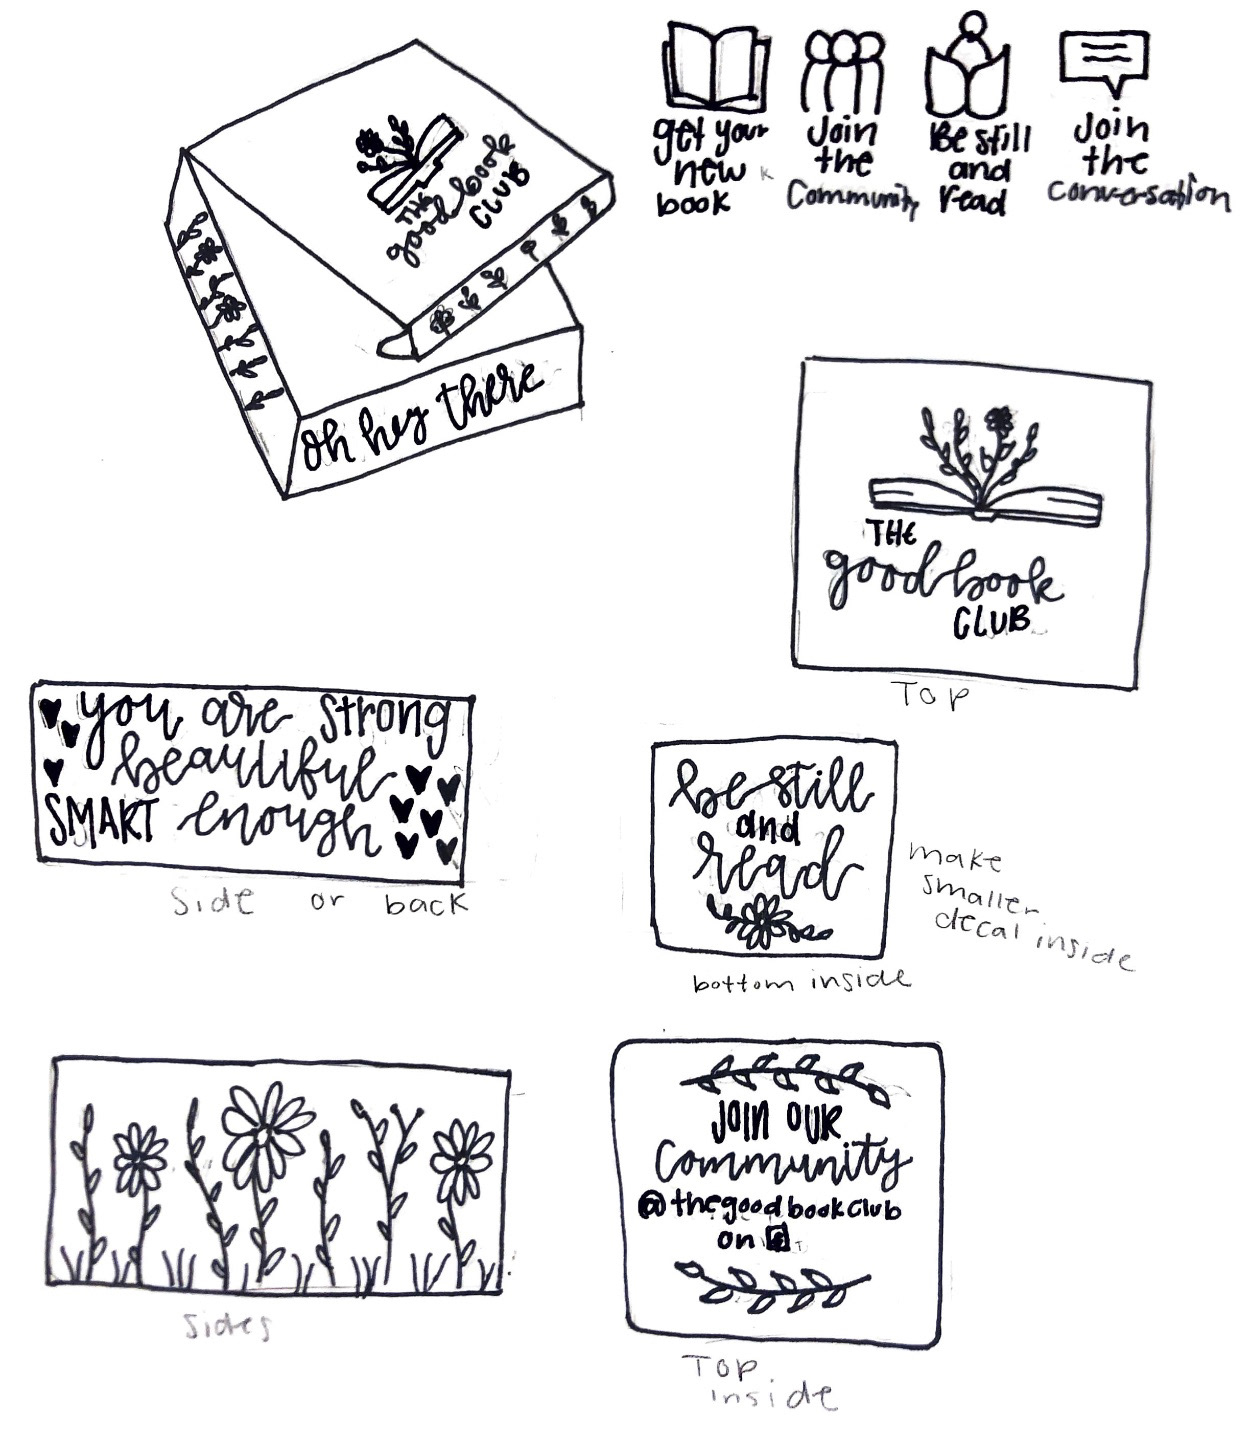 THE
good book
CLUB
oh hey there
get your
new
book
Join
the
Community
Be still
and
read
Join
the
conversation
THE
good book
CLUB
TOP
you are strong
beautiful
SMART enough
side or back
be still
and
read
make
smaller
decal inside
bottom inside
sides
JOIN OUR
Community
@thegoodbookclub
on
TOP
inside